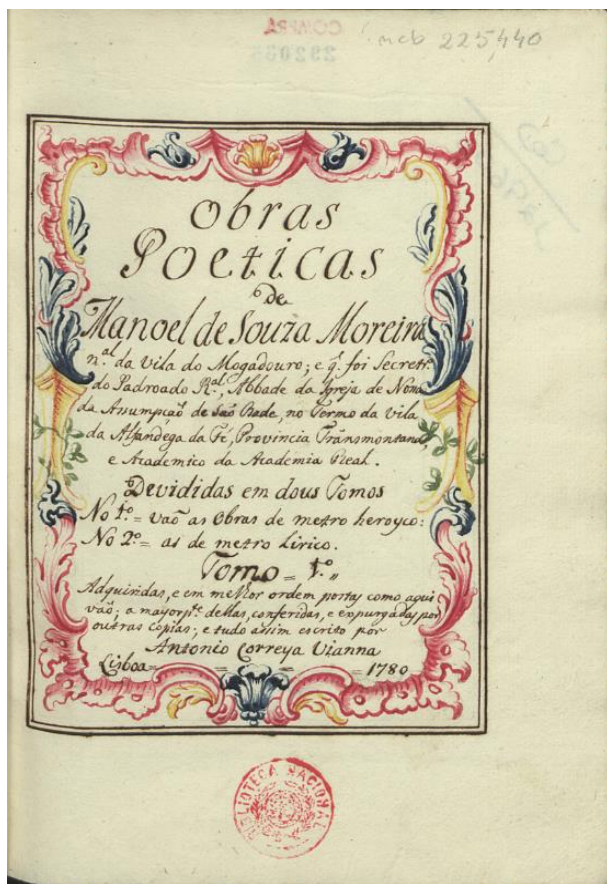 COMPRA
292065
mcb 225,440
Obras
Poeticas
de
Manoel de Souza Moreira
n.al da Vila do Mogadouro; e q̃ foi Secretr.º
do Padroado R.al, Abbade da Igreja de Nossa
da Assumpçaõ de Saõ Bade, no Termo da Vila
da Alfandega da Fé, Provincia Transmontana,
e Academico da Academia Real.
Devididas em dous Tomos
No 1.º = vaõ as Obras de metro heroyco:
No 2.º = as de metro Lirico.
Tomo = 1.º „
Adquiridas, e em melhor ordem postas como aqui
vaõ; a mayor p.te dellas, conferidas, e expurgadas por
outras copias; e tudo assim escrito por
Antonio Correya Vianna
Lisboa = = = = 1780
BIBLIOTECA NACIONAL